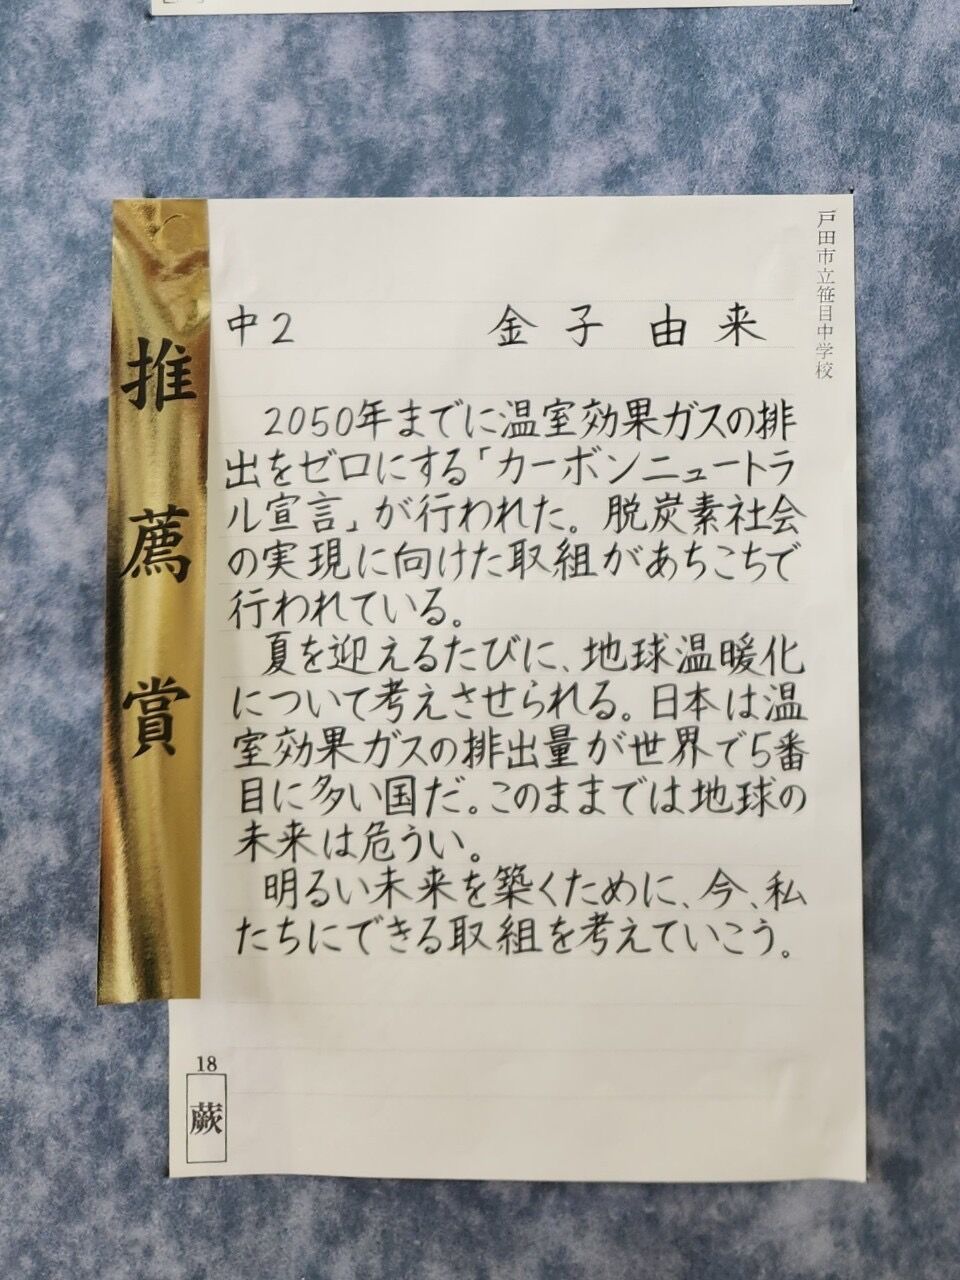 戸田市立笹目中学校
中2 金子 由来
2050年までに温室効果ガスの排
出をゼロにする「カーボンニュートラ
ル宣言」が行われた。脱炭素社会
の実現に向けた取組があちこちで
行われている。
夏を迎えるたびに、地球温暖化
について考えさせられる。日本は温
室効果ガスの排出量が世界で5番
目に多い国だ。このままでは地球の
未来は危うい。
明るい未来を築くために、今、私
たちにできる取組を考えていこう。
推薦賞
18
蕨